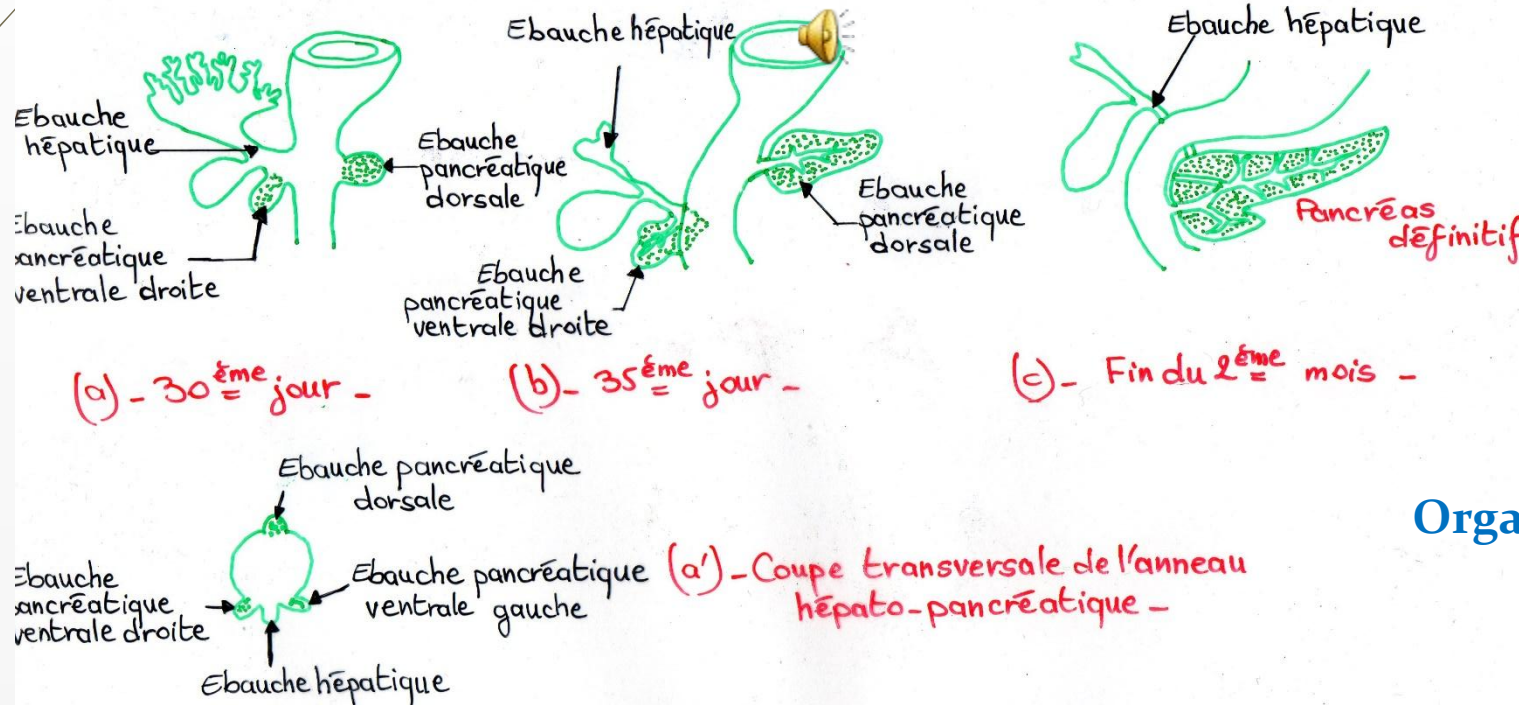 Ebauche
hépatique
Ebauche
pancréatique
dorsale
Ebauche
pancréatique
ventrale droite
(a) - 30ème jour -
Ebauche hépatique
Ebauche
pancréatique
dorsale
Ebauche
pancréatique
ventrale droite
(b) - 35ème jour -
Ebauche hépatique
Pancréas
définitif
(c) - Fin du 2ème mois -
Ebauche pancréatique
dorsale
Ebauche
pancréatique
ventrale droite
Ebauche pancréatique
ventrale gauche
Ebauche hépatique
(a') - Coupe transversale de l'anneau
hépato-pancréatique -
Orga